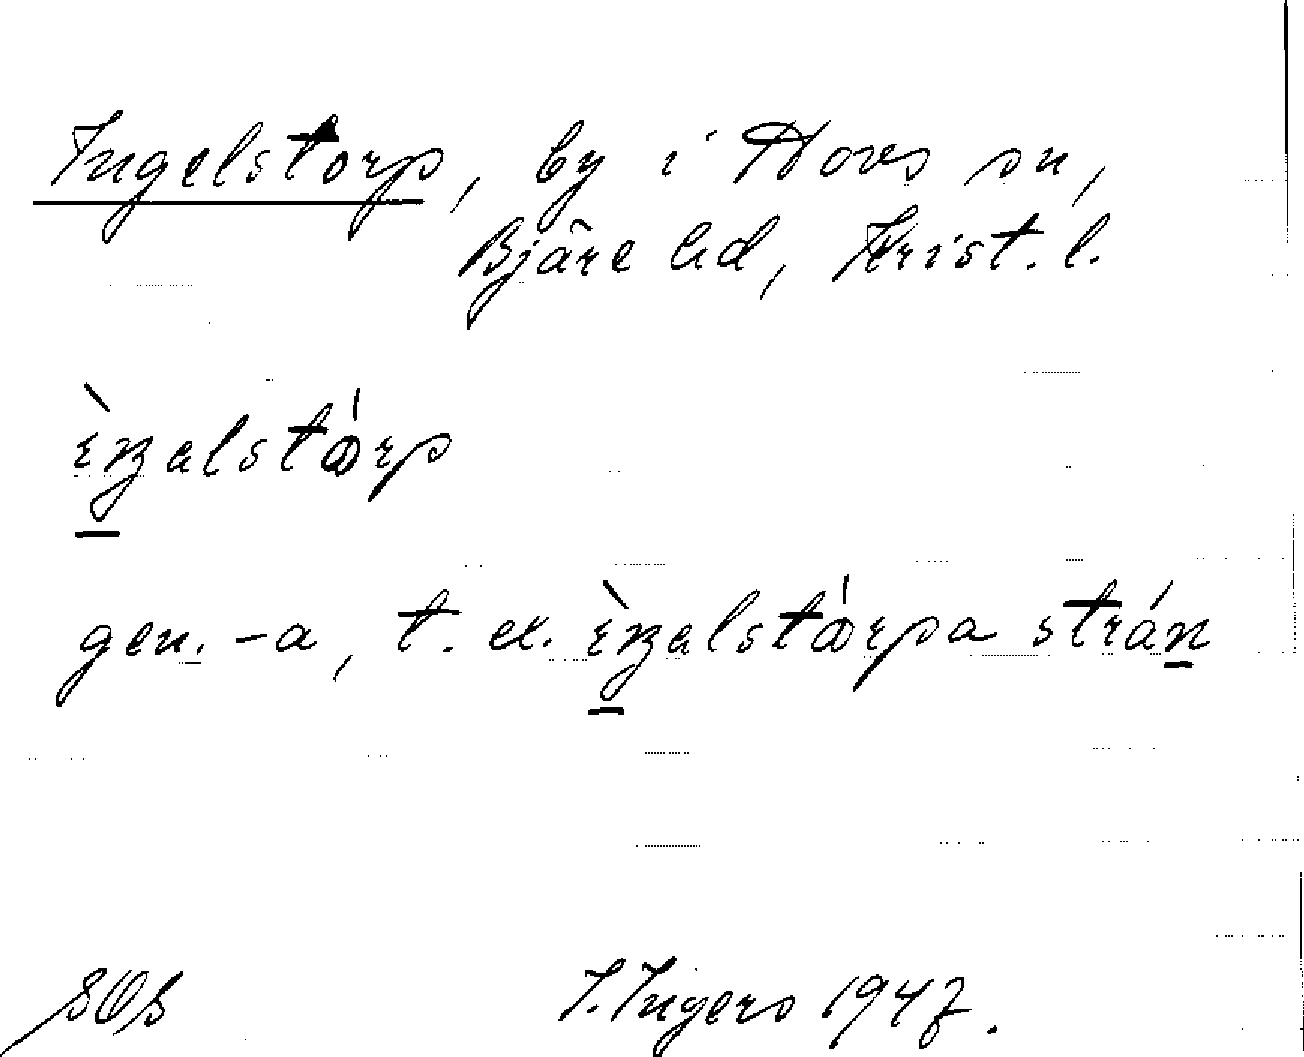 Ingelstorp, by i Hovs sn,
Bjäre hd, Krist. l.
ìŋəlstɷ́rp
gen. -a, t. ex. ìŋəlstɷ́rpa strán
SOS I. Ingers 1947.